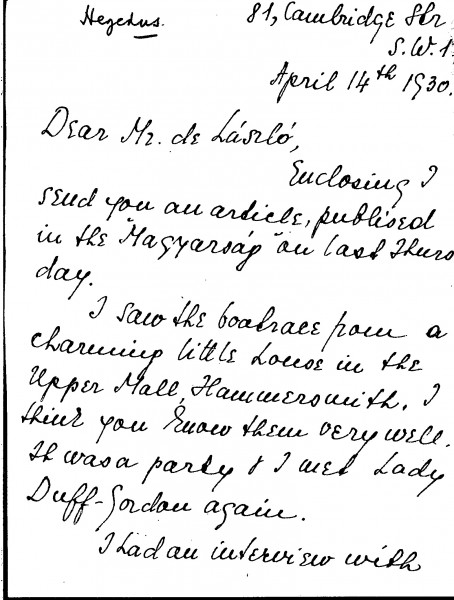 Hegedus.
81, Cambridge Str
S.W.1.
April 14th 1930.
Dear Mr. de László,
Enclosing I
send you an article, publised
in the "Magyarság" on last Thurs
day.
I saw the boatrace from a
charming little house in the
Upper Mall, Hammersmith. I
think you know them very well.
It was a party & I met Lady
Duff-Gordon again.
I had an interview with